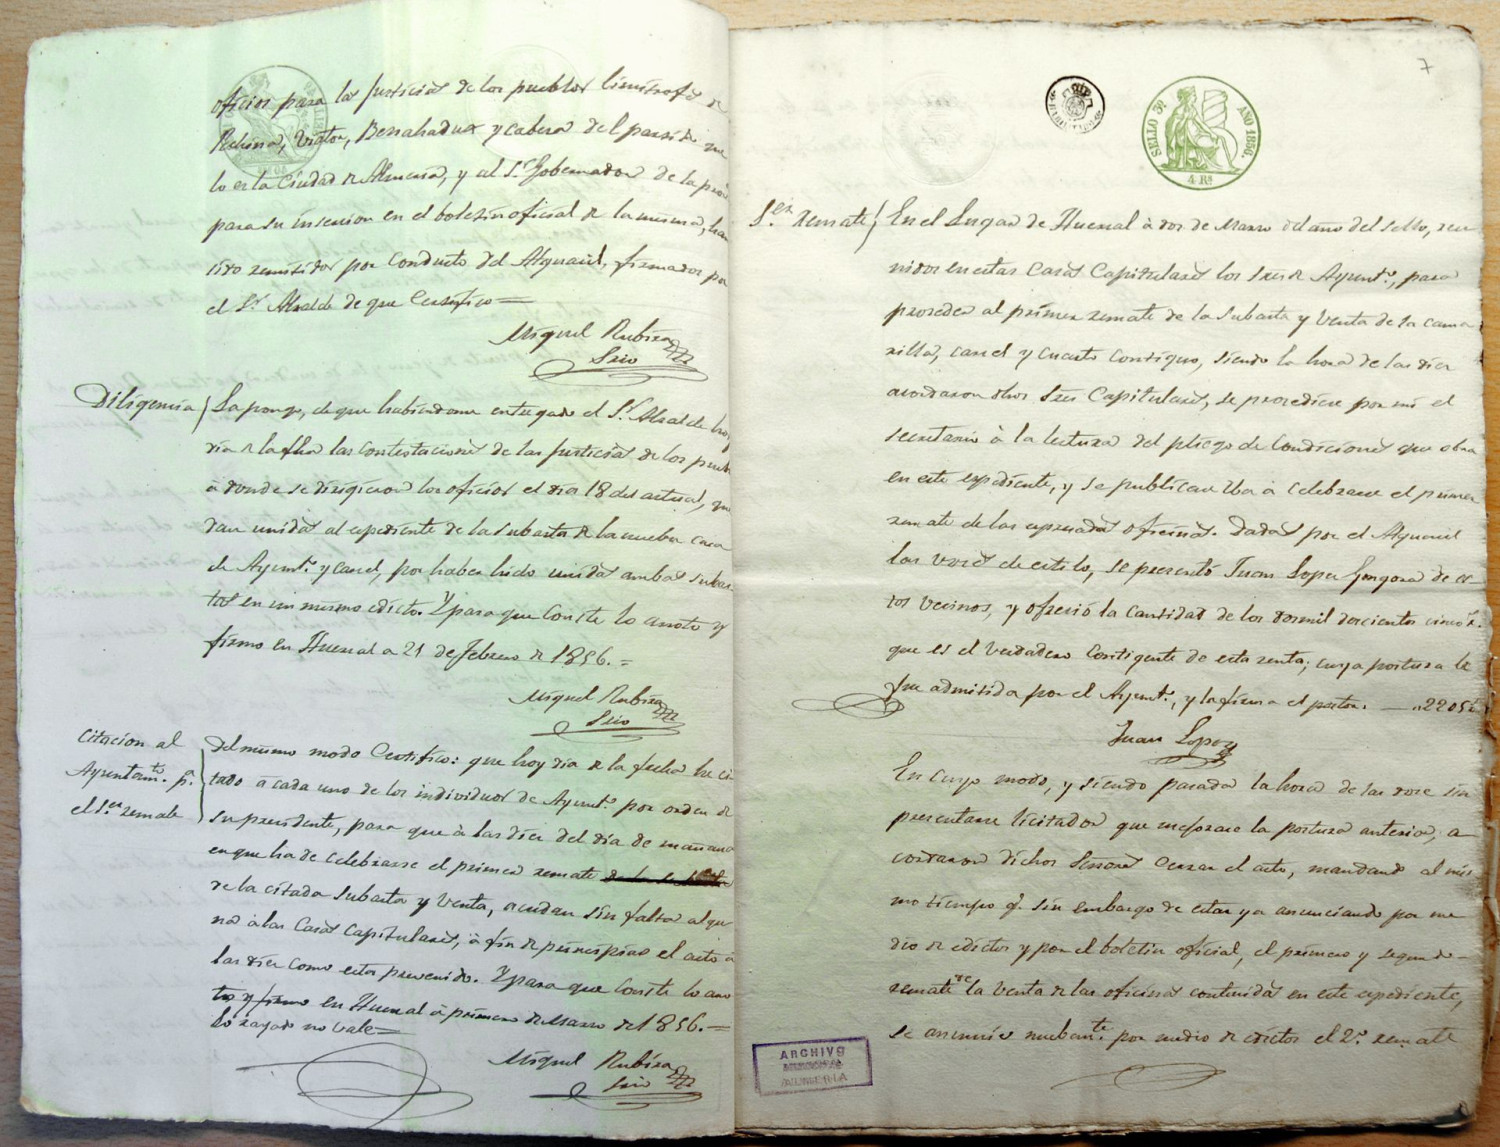 oficios para las Justicias de los pueblos limitrofes de
Rehina, Viator, Benahadux y cabeza del partido que
lo es la Ciudad de Almeria, y al Sr. Gobernador de la prov
para su insercion en el boletin oficial de la misma, han
sido remitidos por conducto del Alguacil, firmados por
el Sr. Alcalde de que Certifico=
Miguel Rubira
Srio
Diligencia La pongo, de que habiendome entregado el Sr. Alcalde hoy
dia de la fha las contestaciones de las Justicias de los pueblos
á donde se dirigieron los oficios el dia 18 del actual, que
dan unidas al espediente de la subasta de la nueba casa
de Ayunto. y carcel, por haber hido unidas ambas subas-
tas en un mismo edicto. Y para que conste lo anoto y
firmo en Huercal a 21 de Febrero de 1856.=
Miguel Rubira
Srio
Citacion al
Ayuntamto. pa.
el 1er. remate
Del mismo modo Certifico: que hoy dia de la fecha he ci-
tado a cada uno de los individuos de Ayunto. por orden de
su presidente, para que á las diez del dia de mañana
en que ha de celebrarse el primer remate
de la citada subasta y venta, acudan sin falta algu
na á las Casas Capitulares, á fin de principiar el acto á
las diez como esta prevenido. Y para que conste lo ano
to y firmo en Huercal á primero de Marzo de 1856.=
lo rayado no vale=
Miguel Rubira
Srio
7
SELLO 3º
AÑO 1856.
4 Rs
1er. remate En el Lugar de Huercal á dos de Marzo del año del sello, reu
nidos en estas Casas Capitulares los Sres de Ayunto., para
proceder al primer remate de la subasta y venta de la cama
rilla, carcel y cuarto contiguo, siendo la hora de las diez
acordaron dhos Sres Capitulares, se procediese por mi el
secretario á la lectura del pliego de Condiciones que obra
en este espediente, y se publicase iba á celebrarse el primer
remate de las espresadas oficinas. Dadas por el Alguacil
las voces de estilo, se presentó Juan Lopez Gongora de es-
tos vecinos, y ofreció la cantidad de los dosmil doscientos cinco rs.
que es el verdadero contigente de esta renta; cuya postura le
fue admitida por el Ayunto., y la firma el postor. — 2205
Juan Lopez
En cuyo modo, y siendo pasada la hora de las doce sin
presentarse licitador que mejorase la postura anterior, a
cordaron dichos Señores cerrar el acto, mandando al mis
mo tiempo q. sin embargo de estar ya anunciando por me
dio de edictos y por el boletin oficial, el primero y segundo-
remate de la venta de las oficinas contenidas en este espediente,
se anuncie nuebamte. por medio de edictos el 2º. remate
ARCHIVO
MUNICIPAL